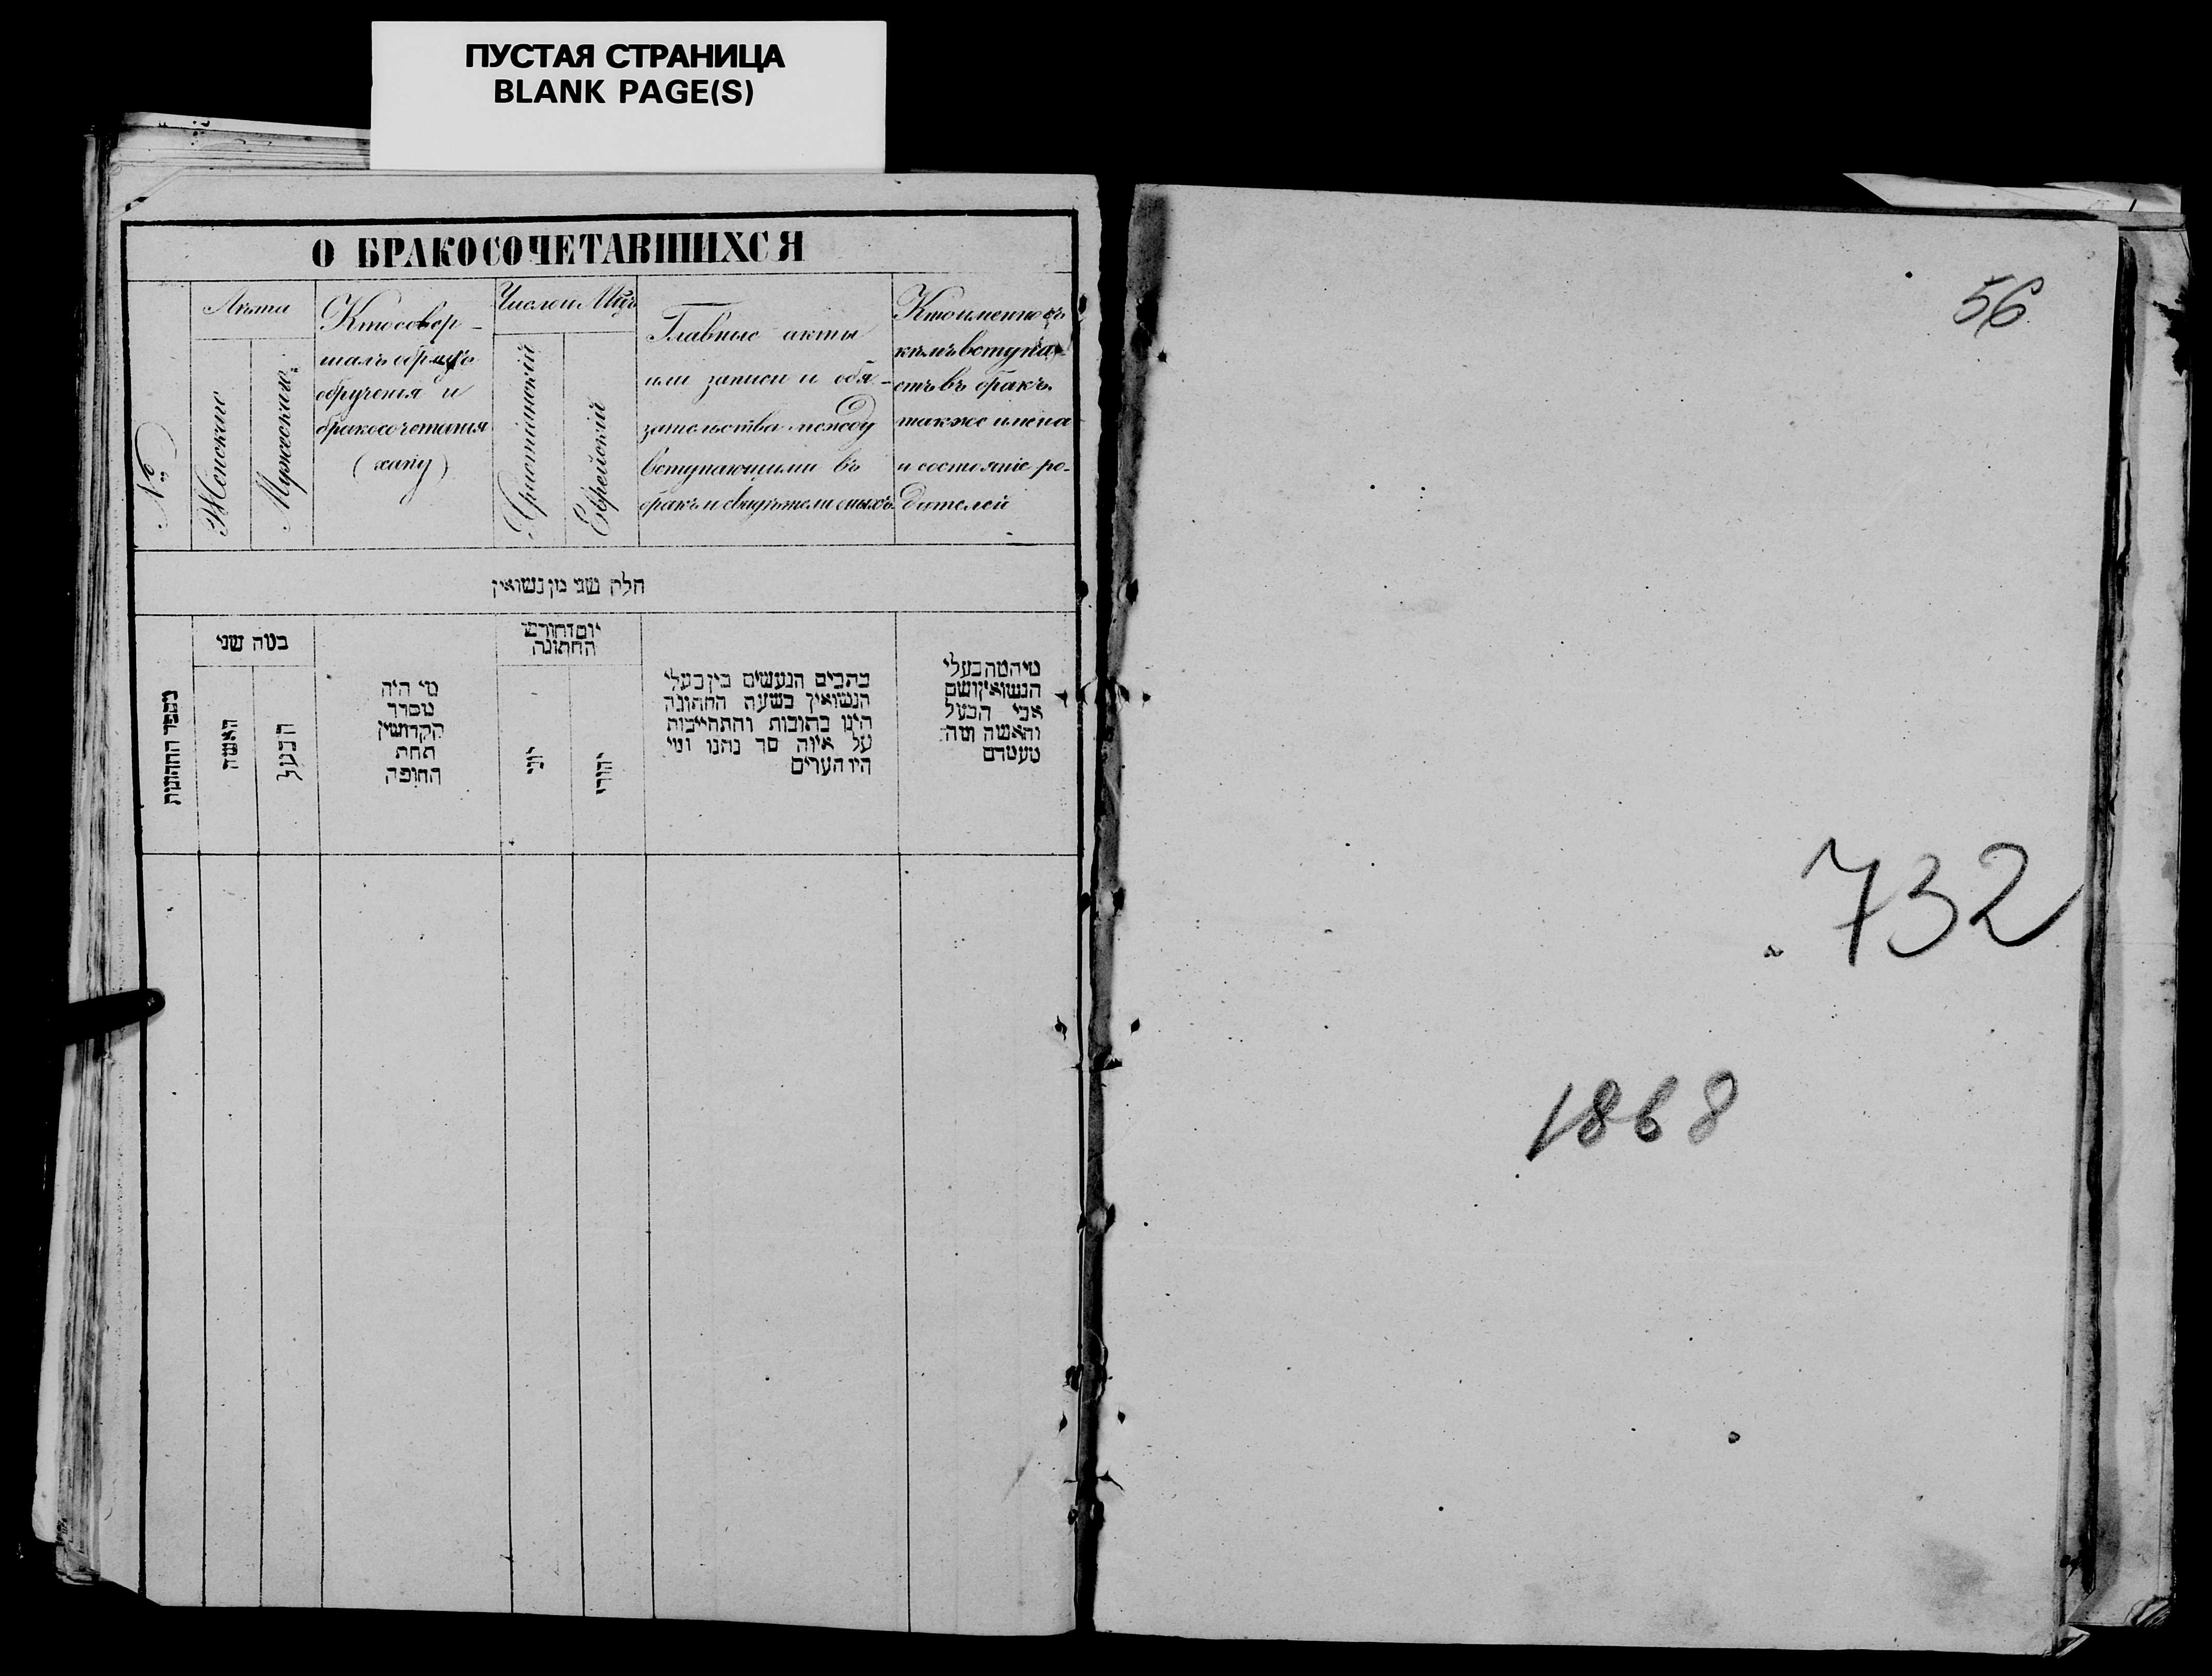 ПУСТАЯ СТРАНИЦА
BLANK PAGE(S)
О БРАКОСОЧЕТАВШИХСЯ
№
Лѣта
Женскаго
Мужескаго
Кто совер-
шалъ обрядъ
обрученія и
бракосочетанія
(хапу)
Число и Мцъ
Христіанскій
Еврейскій
Главные акты
или записи и обя-
зательства между
вступающими въ
бракъ и свидѣтели оныхъ
Кто именно съ
кѣмъ вступа-
етъ въ бракъ
также имена
и состояніе ро-
дителей
חלק שני מן נשואין
מספר החתונות
במה שני
האשה
הבעל
מי היה
מסדר
הקדושין
תחת
החופה
יום וחודש
החתונה
יהודי
כתבים הנעשים בין בעלי
הנשואין בשעת החתונה
היינו כתובות והתחייבות
על איזה סך נתנו ומי
היו העדים
מי המה בעלי
הנשואין ושם
אבי הבעל
והאשה ומה
מעמדם
56
732
1868